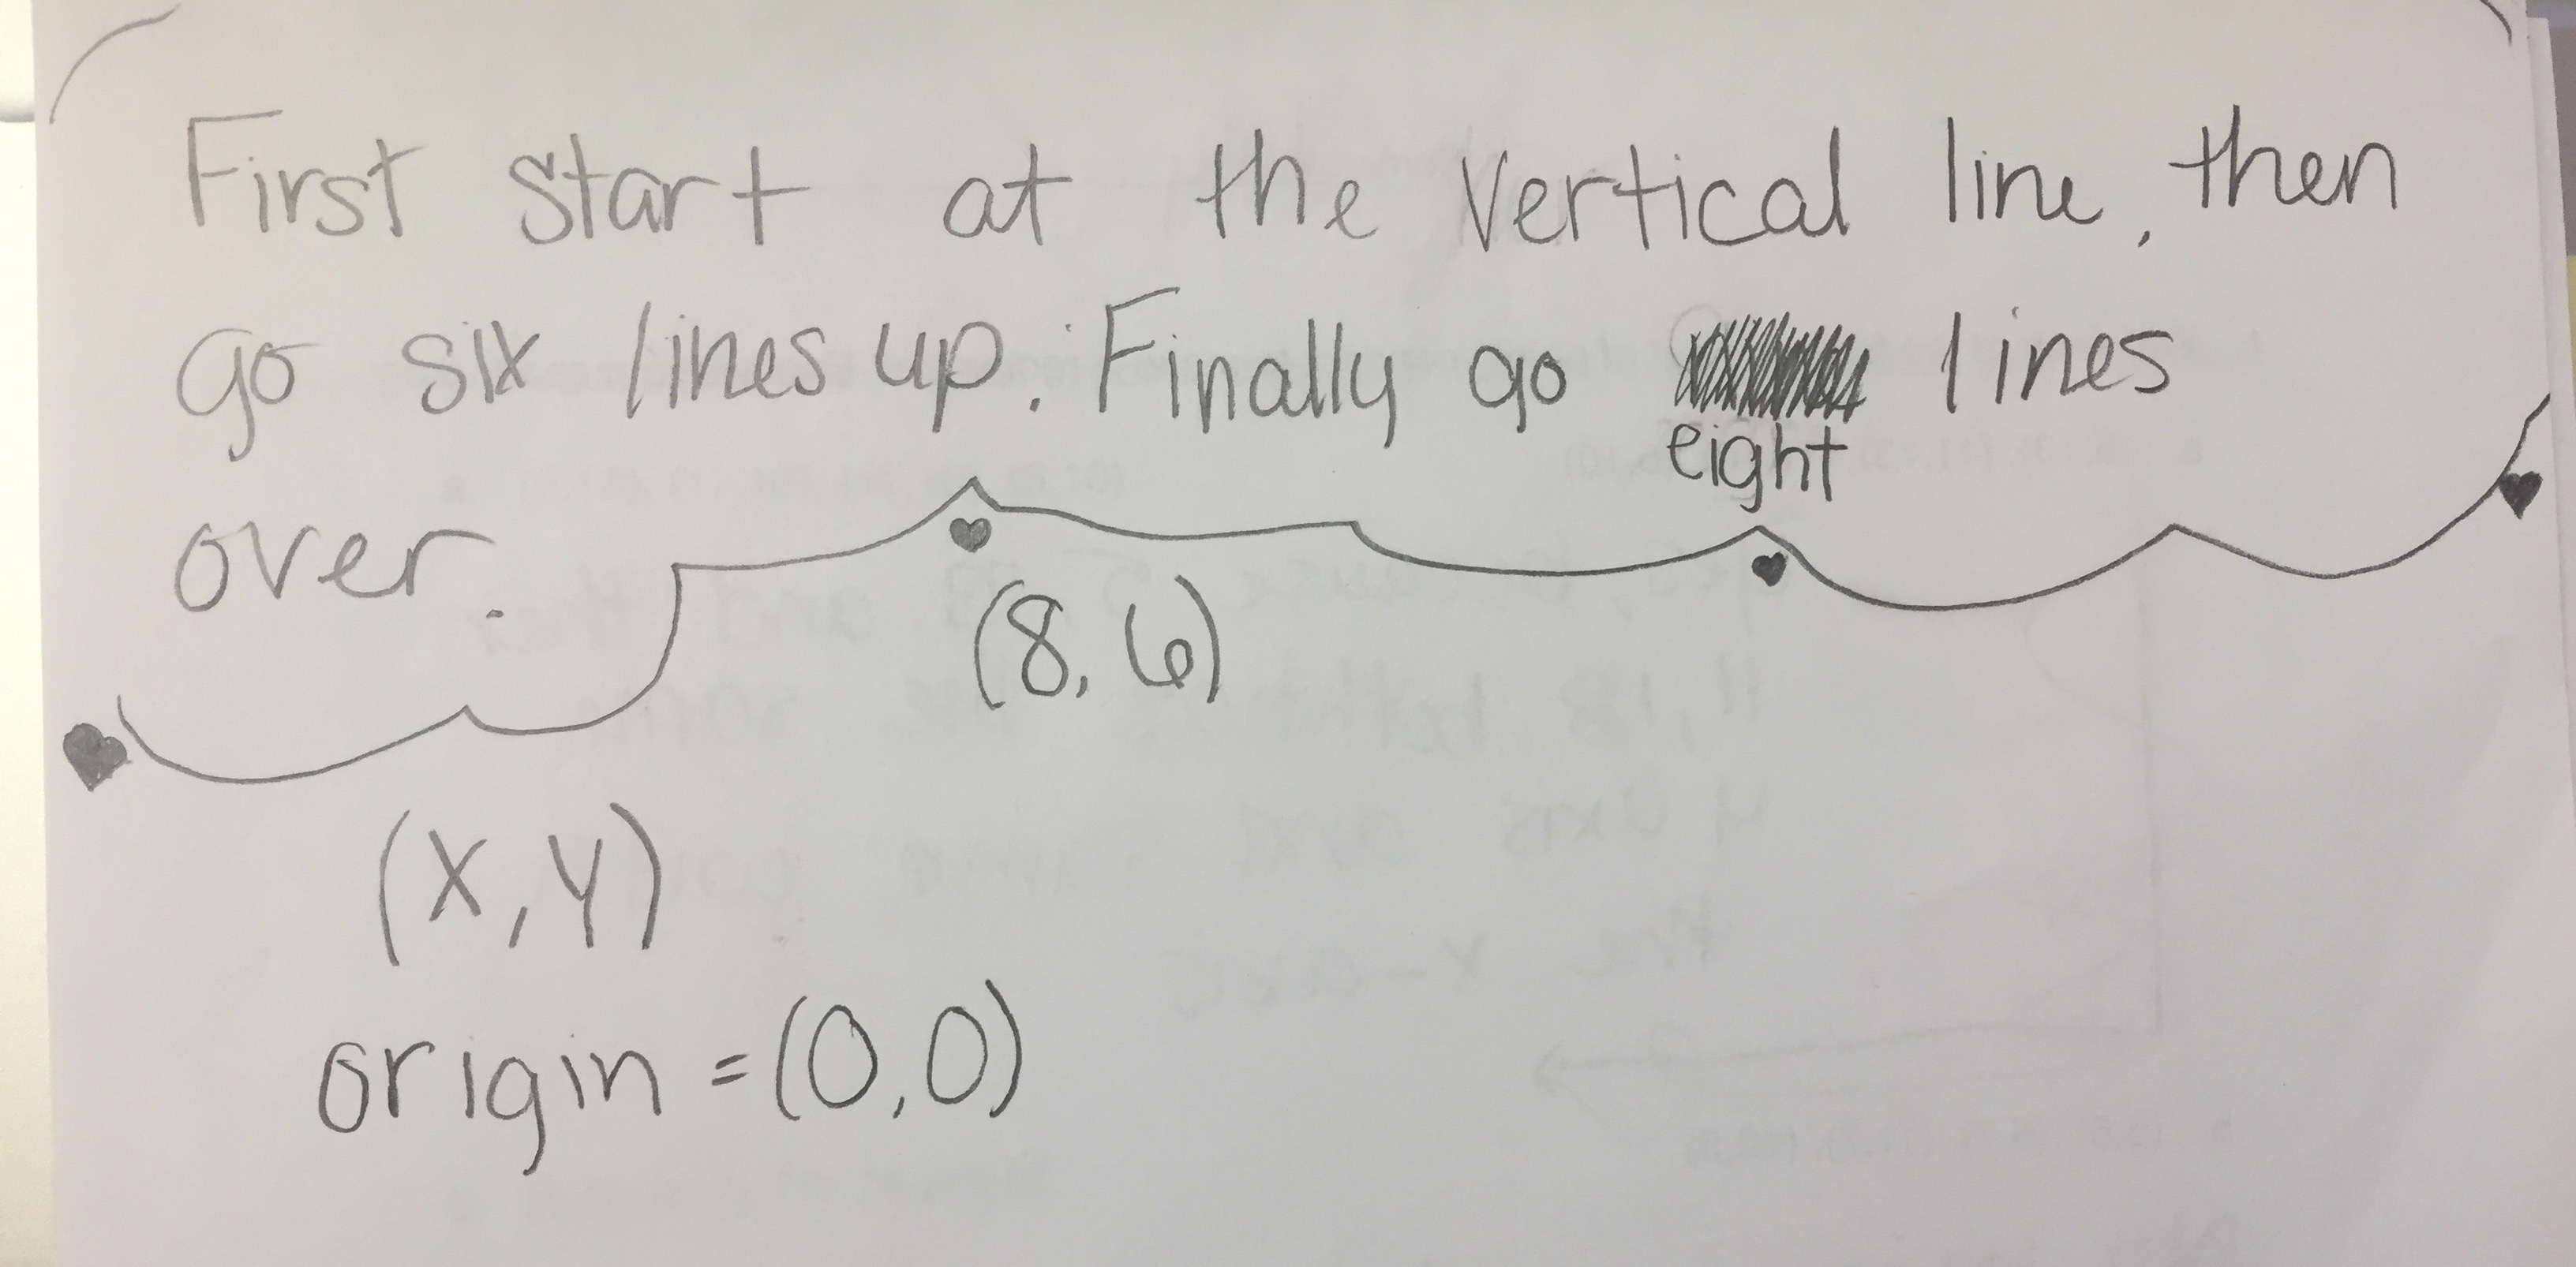 First start at the vertical line, then
go six lines up. Finally go lines
eight
over.
(8, 6)
(x, y)
origin = (0,0)